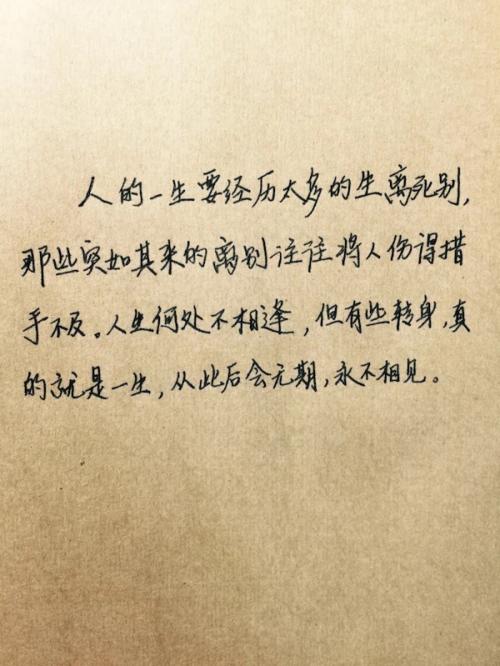 人的一生要经历太多的生离死别，
那些突如其来的离别往往将人伤得措
手不及。人生何处不相逢，但有些转身，真
的就是一生，从此后会无期，永不相见。